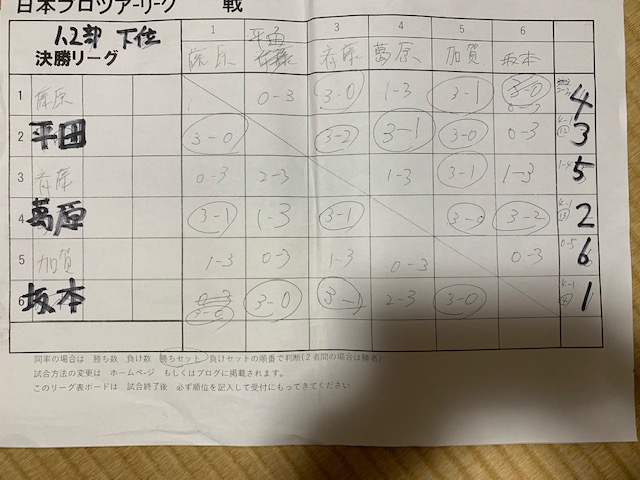 日本プロツアーリーグ 戦
1.2部 下位
決勝リーグ
1 2 3 4 5 6
藤原 平田 斉藤 葛原 加賀 坂本
1 藤原 0-3 3-0 1-3 3-1 4
2 平田 3-0 3-2 3-1 3-0 0-3 4-1 3
3 斉藤 0-3 2-3 1-3 3-1 1-3 1-4 5
4 葛原 3-1 1-3 3-1 3-0 3-2 4-1 2
5 加賀 1-3 0-3 1-3 0-3 0-3 0-5 6
6 坂本 3-0 3-0 3-1 2-3 3-0 4-1 1
同率の場合は 勝ち数 負け数 勝ちセット 負けセットの順番で判断(2名間の場合は勝者)
試合方法の変更は ホームページ もしくはブログに掲載されます。
このリーグ表ボードは 試合終了後 必ず順位を記入して受付にもってきてください